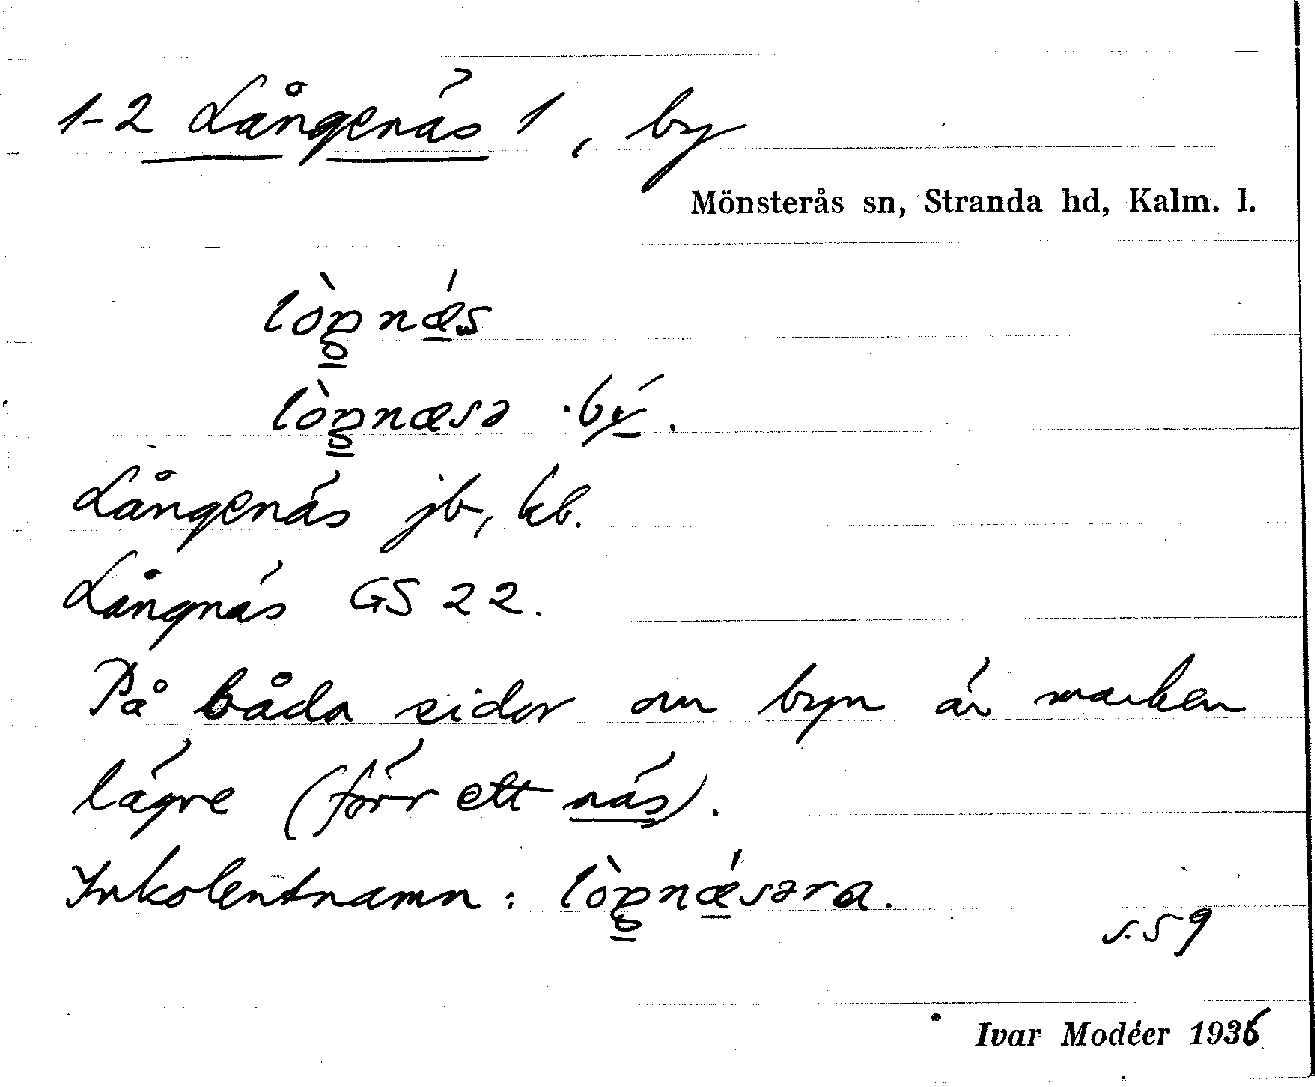 1-2 Långenäs 1, by
Mönsterås sn, Stranda hd, Kalm. l.
lòŋnǽs
lòŋnæsə ·bý.
Långenäs jb, kb.
Långnäs GS 22.
På båda sidor om byn är marken
lägre (förr ett näs).
Inkolentnamn: lòŋnǽsəra.
s.59
Ivar Modéer 1936